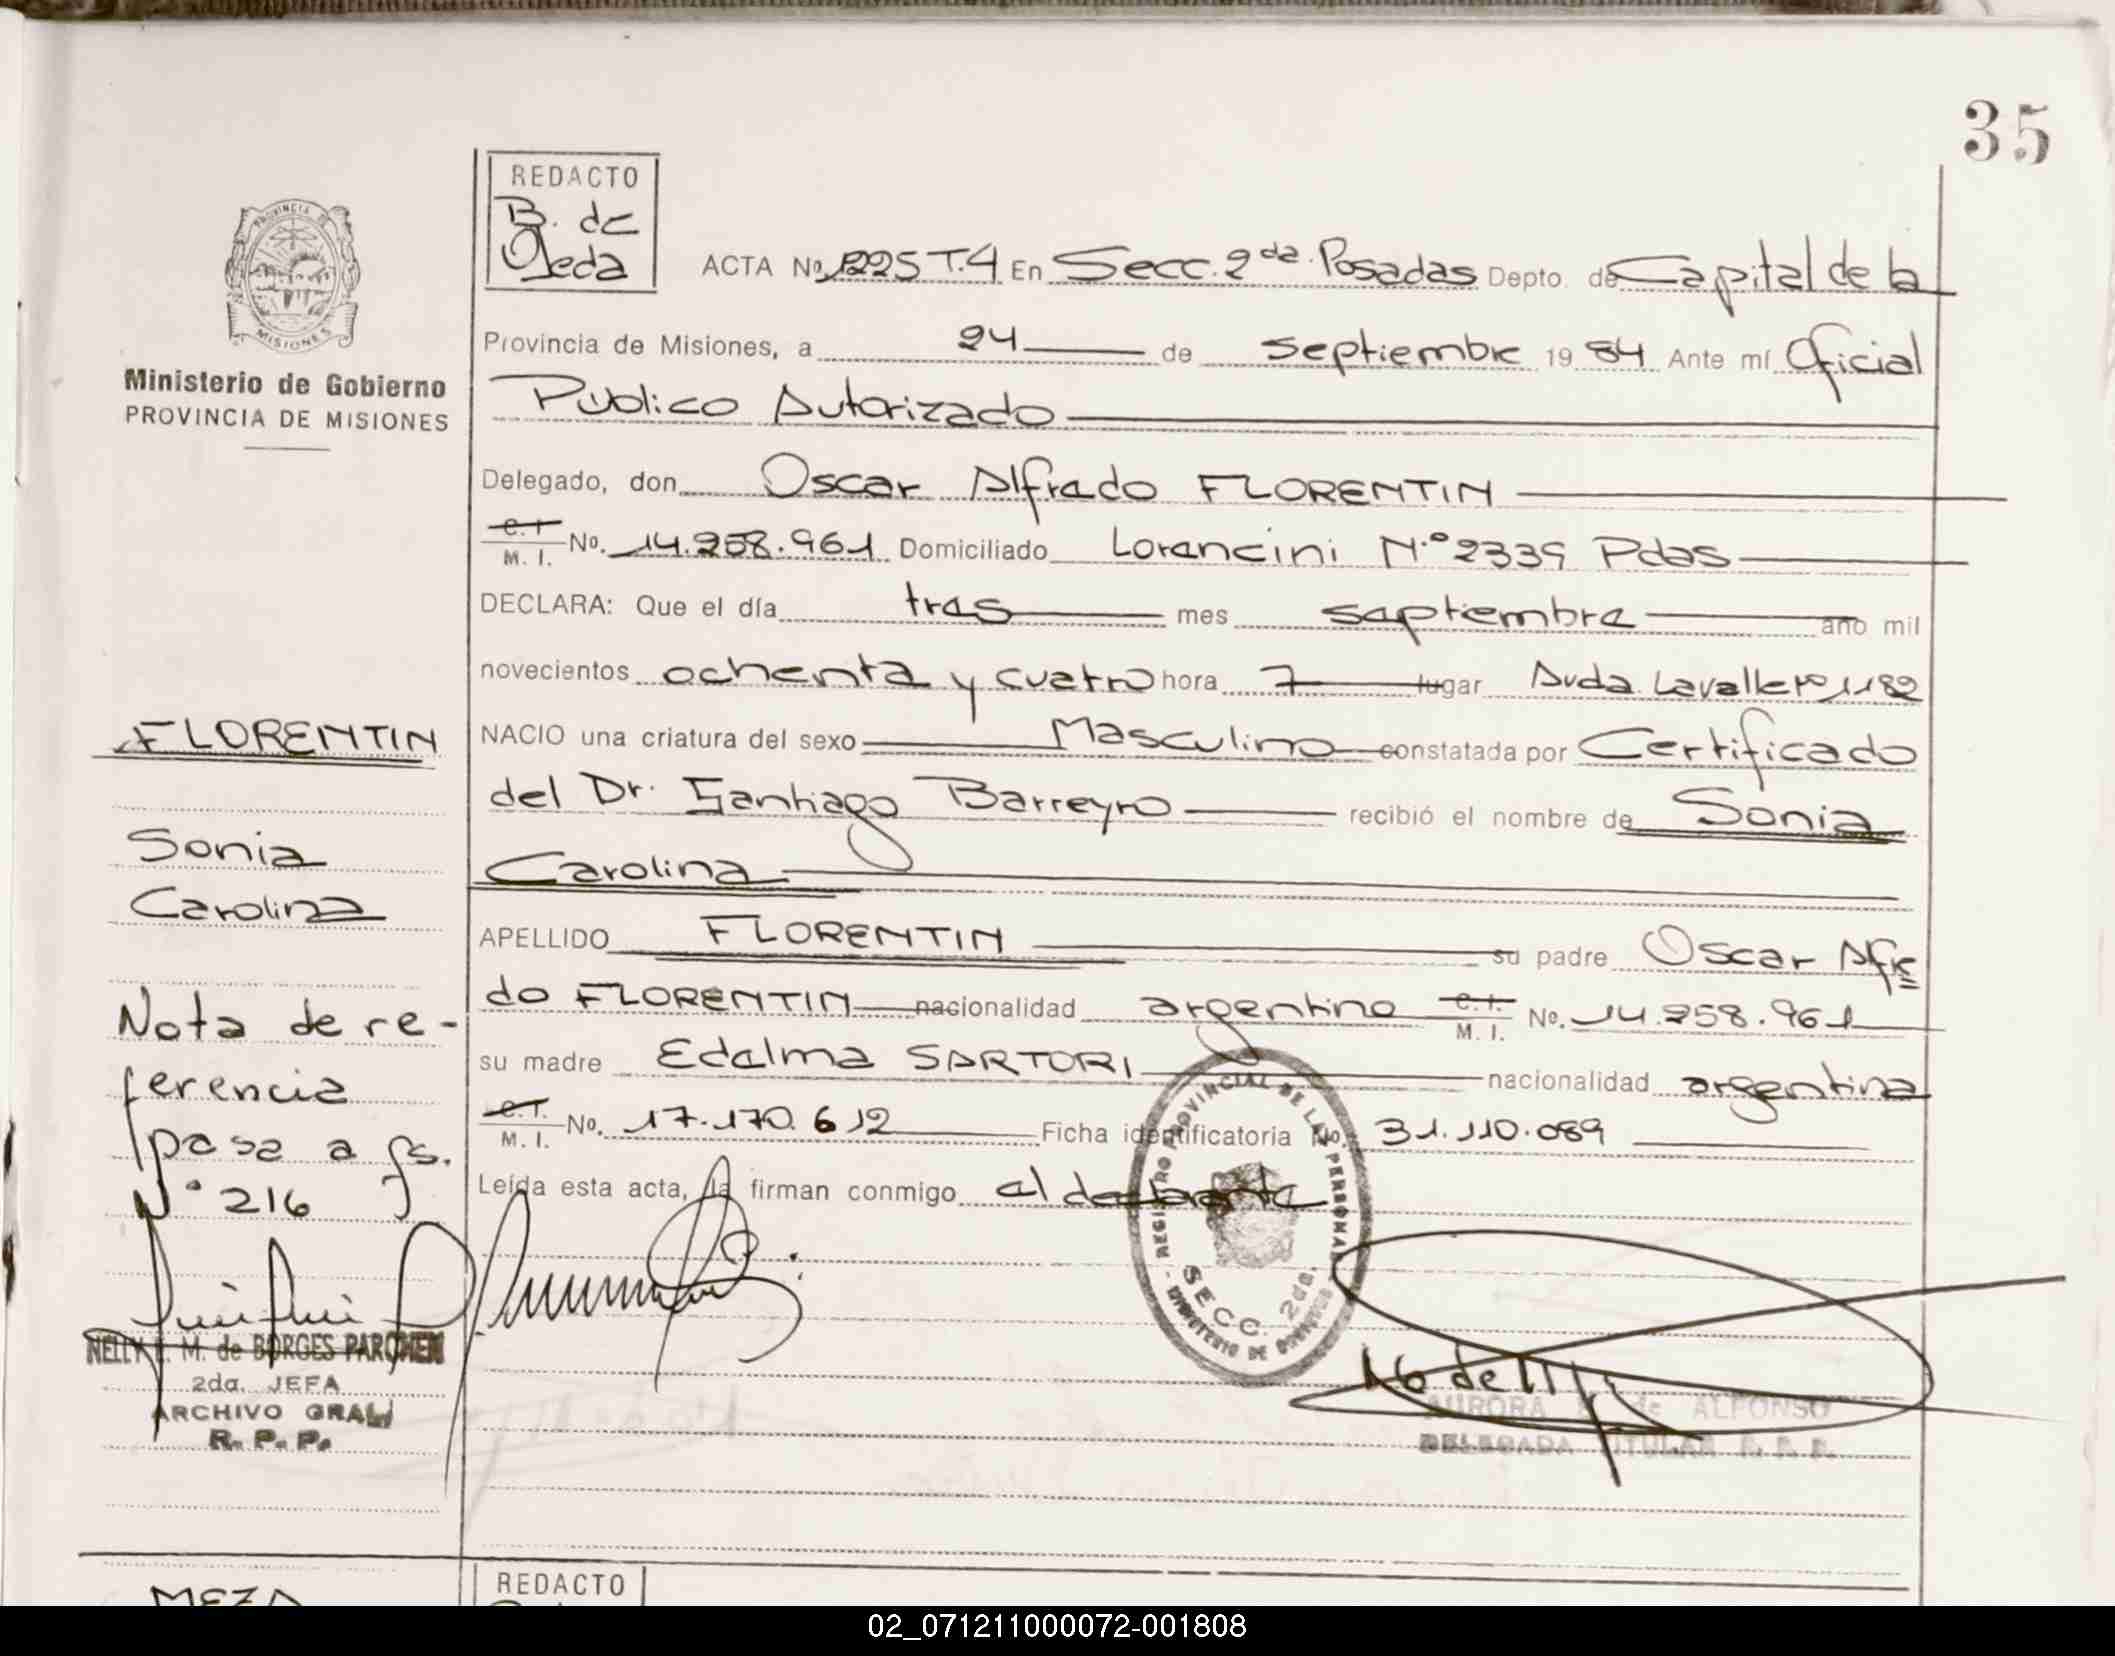 35
REDACTO
B. de
Ojeda
ACTA No. 1225 T.4 En Secc. 2da. Posadas Depto. de Capital de la
PROVINCIA DE
MISIONES
Ministerio de Gobierno
PROVINCIA DE MISIONES
Provincia de Misiones, a 24 de septiembre 1984 Ante mí Oficial
Público Autorizado
Delegado, don Oscar Alfredo FLORENTIN
C.I.
M. I. No. 14.258.961 Domiciliado Lorencini N.° 2339 Pdas
DECLARA: Que el día tres mes septiembre año mil
novecientos ochenta y cuatro hora 7 lugar Avda. Lavalle n° 1182
FLORENTIN
NACIO una criatura del sexo Masculino constatada por Certificado
del Dr. Santiago Barreyro recibió el nombre de Sonia
Sonia
Carolina
Carolina
APELLIDO FLORENTIN su padre Oscar Alfre
do FLORENTIN nacionalidad argentino C.I.
M. I. No. 14.258.961
su madre Edelma SARTORI nacionalidad argentina
C.I.
M. I. No. 17.170.612 Ficha identificatoria No. 31.110.089
Leída esta acta, la firman conmigo el declarante
Nota de re-
ferencia
pasa a fs.
N° 216
REGISTRO PROVINCIAL DE LAS PERSONAS
SECC. 2da.
MINISTERIO DE GOBIERNO
NELLY L. M. de BORGES PARCHEN
2da. JEFA
ARCHIVO GRAL
R. P. P.
AURORA de ALFONSO
DELEGADA TITULAR R. P. P.
MEZA
REDACTO
02_071211000072-001808